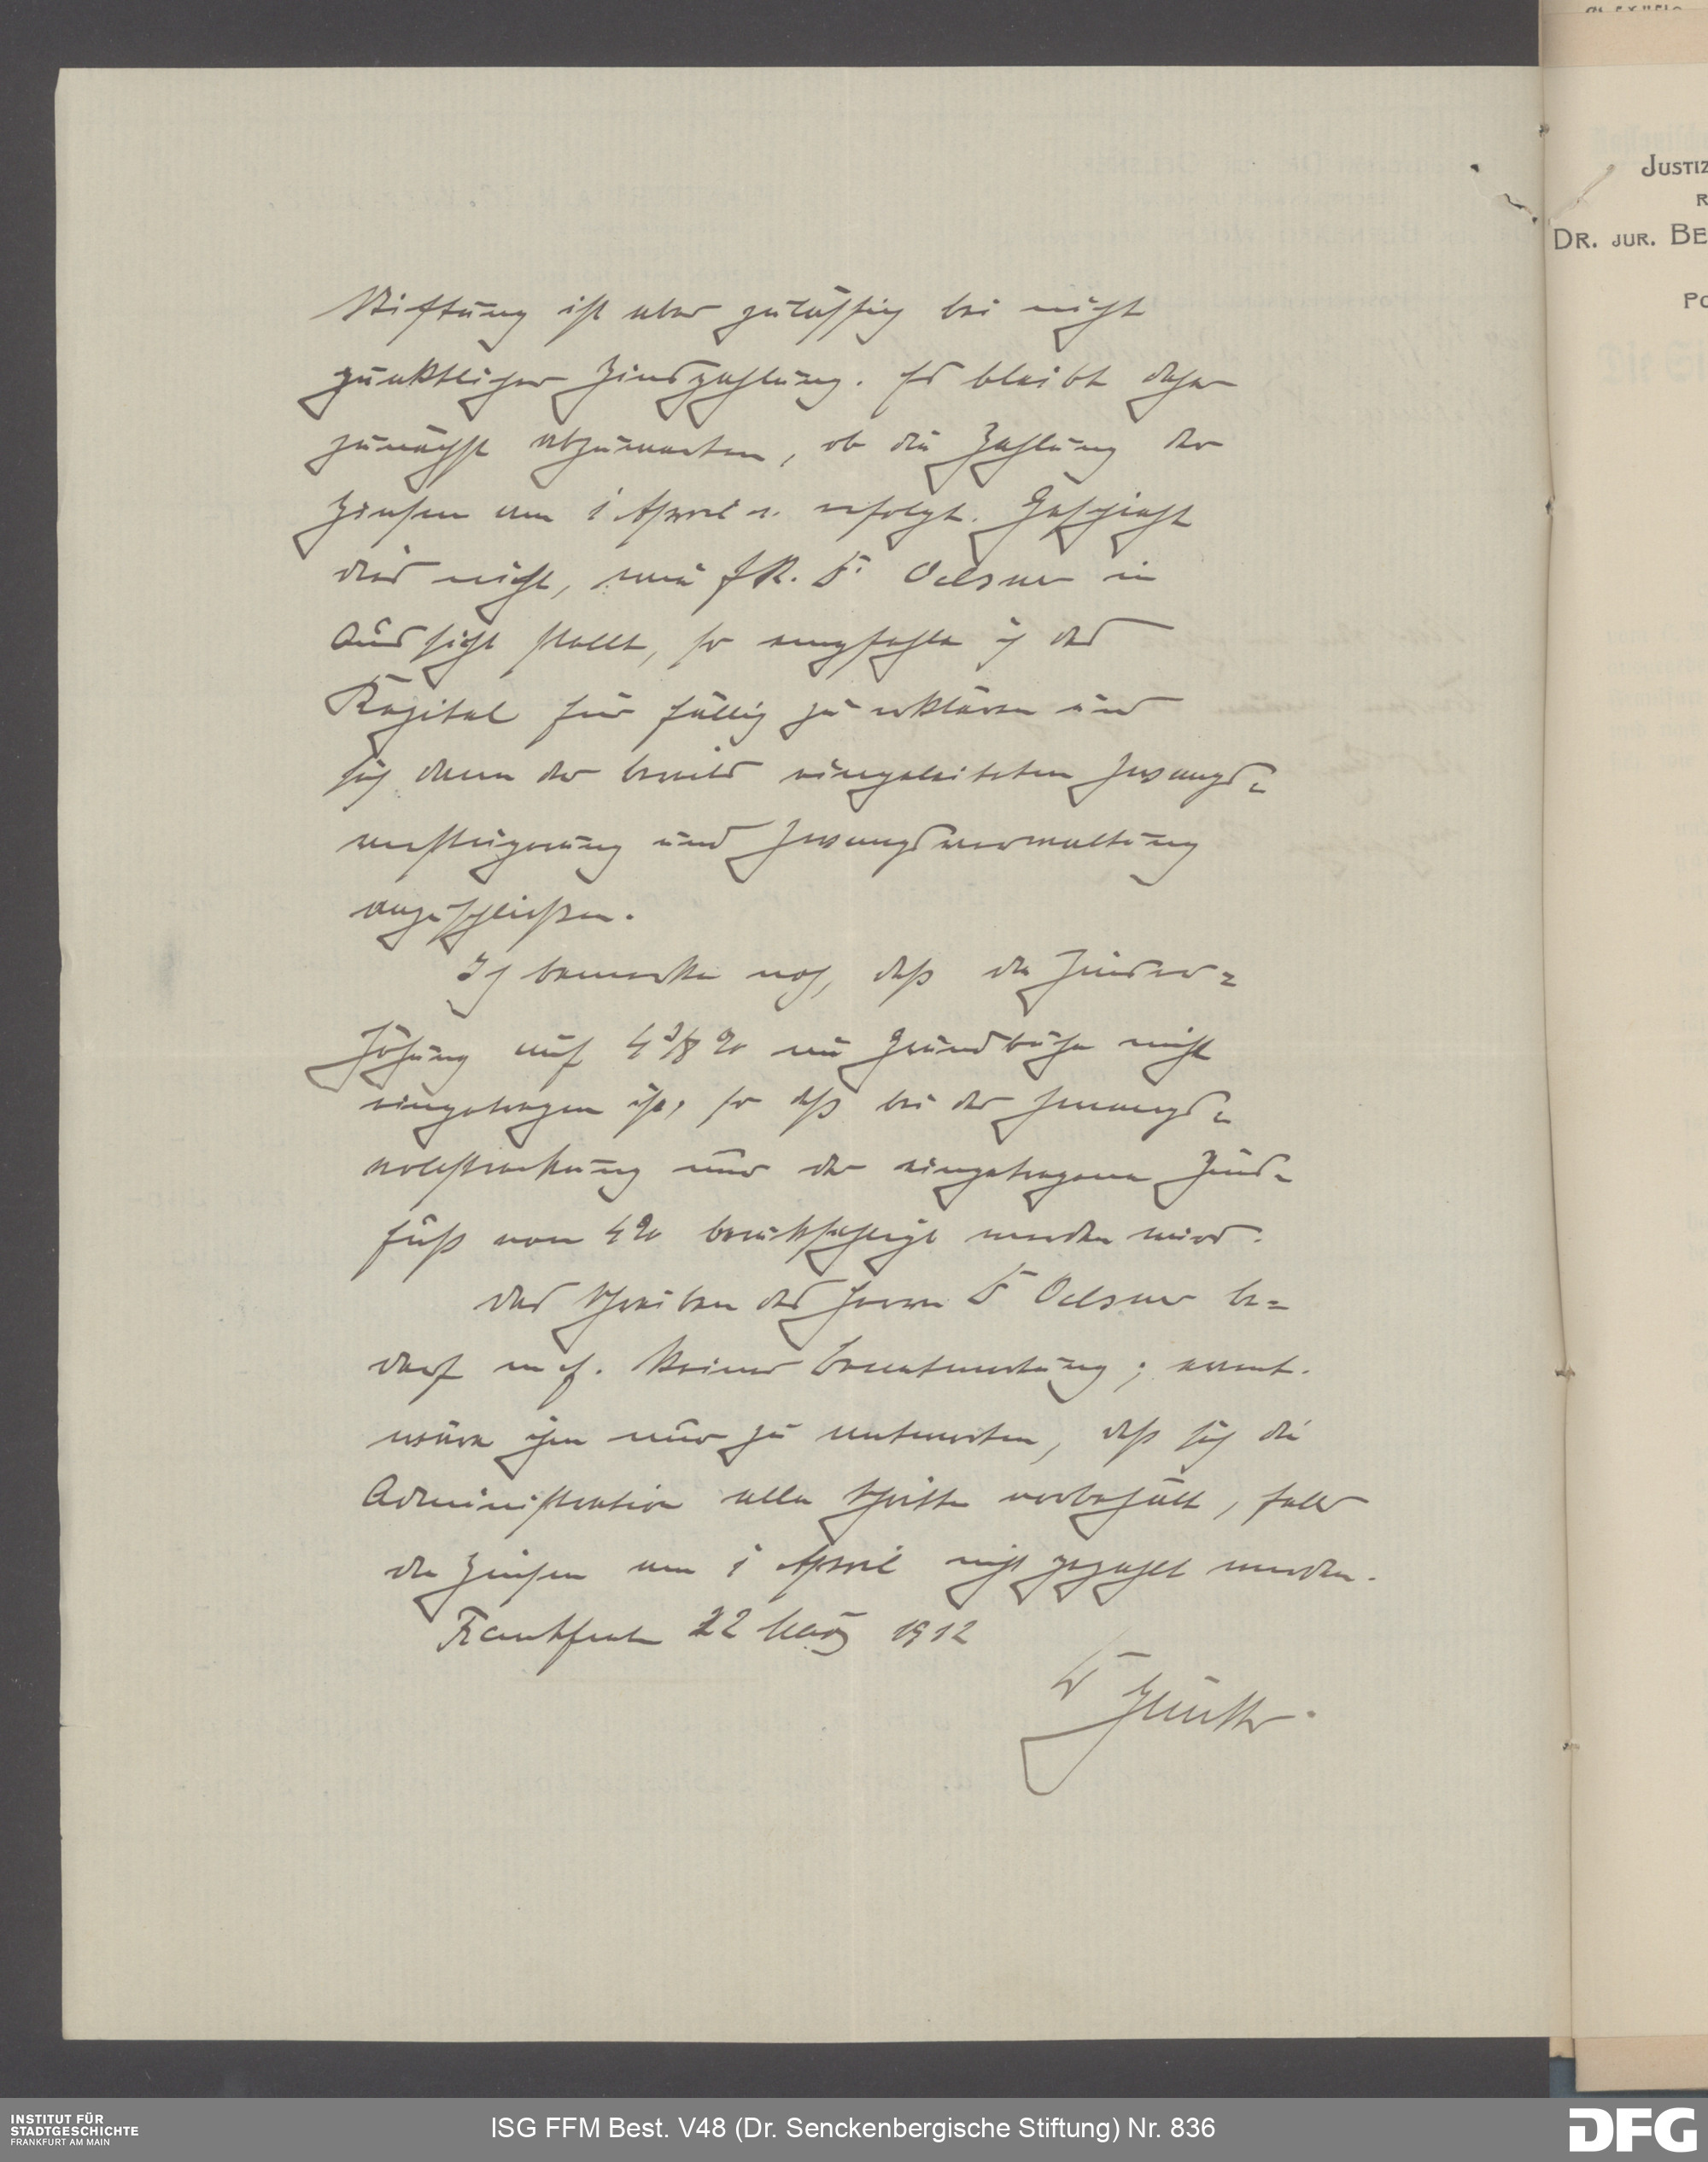 Stiftung ist aber zulässig bei nicht
pünktlicher Zinszahlung. Es bleibt daher
zunächst abzuwarten, ob die Zahlung der
Zinsen am 1 April er. erfolgt. Geschieht
dies nicht, wie J.R. Dr Oelsner in
Aussicht stellt, so empfehle ich das
Kapital für fällig zu erklären und
sich dann der bereits eingeleiteten Zwangs-
versteigerung und Zwangsverwaltung
anzuschließen.
Ich bemerke noch, daß die Zinser-
höhung auf 4 3/8 % im Grundbuche nicht
eingetragen ist, so daß bei der Zwangs-
vollstreckung nur der eingetragene Zins-
fuß von 4% berücksichtigt werden wird.
Das Schreiben des Herrn Dr Oelsner be-
darf m. E. keiner Beantwortung; event.
wäre ihm nur zu antworten, daß sich die
Administration alle Schritte vorbehält, falls
die Zinsen am 1 April nicht gezahlt werden.
Frankfurt 22 März 1912
Dr
JUSTIZ
R
DR. JUR. BE
PO
INSTITUT FÜR
STADTGESCHICHTE
FRANKFURT AM MAIN
ISG FFM Best. V48 (Dr. Senckenbergische Stiftung) Nr. 836
DFG